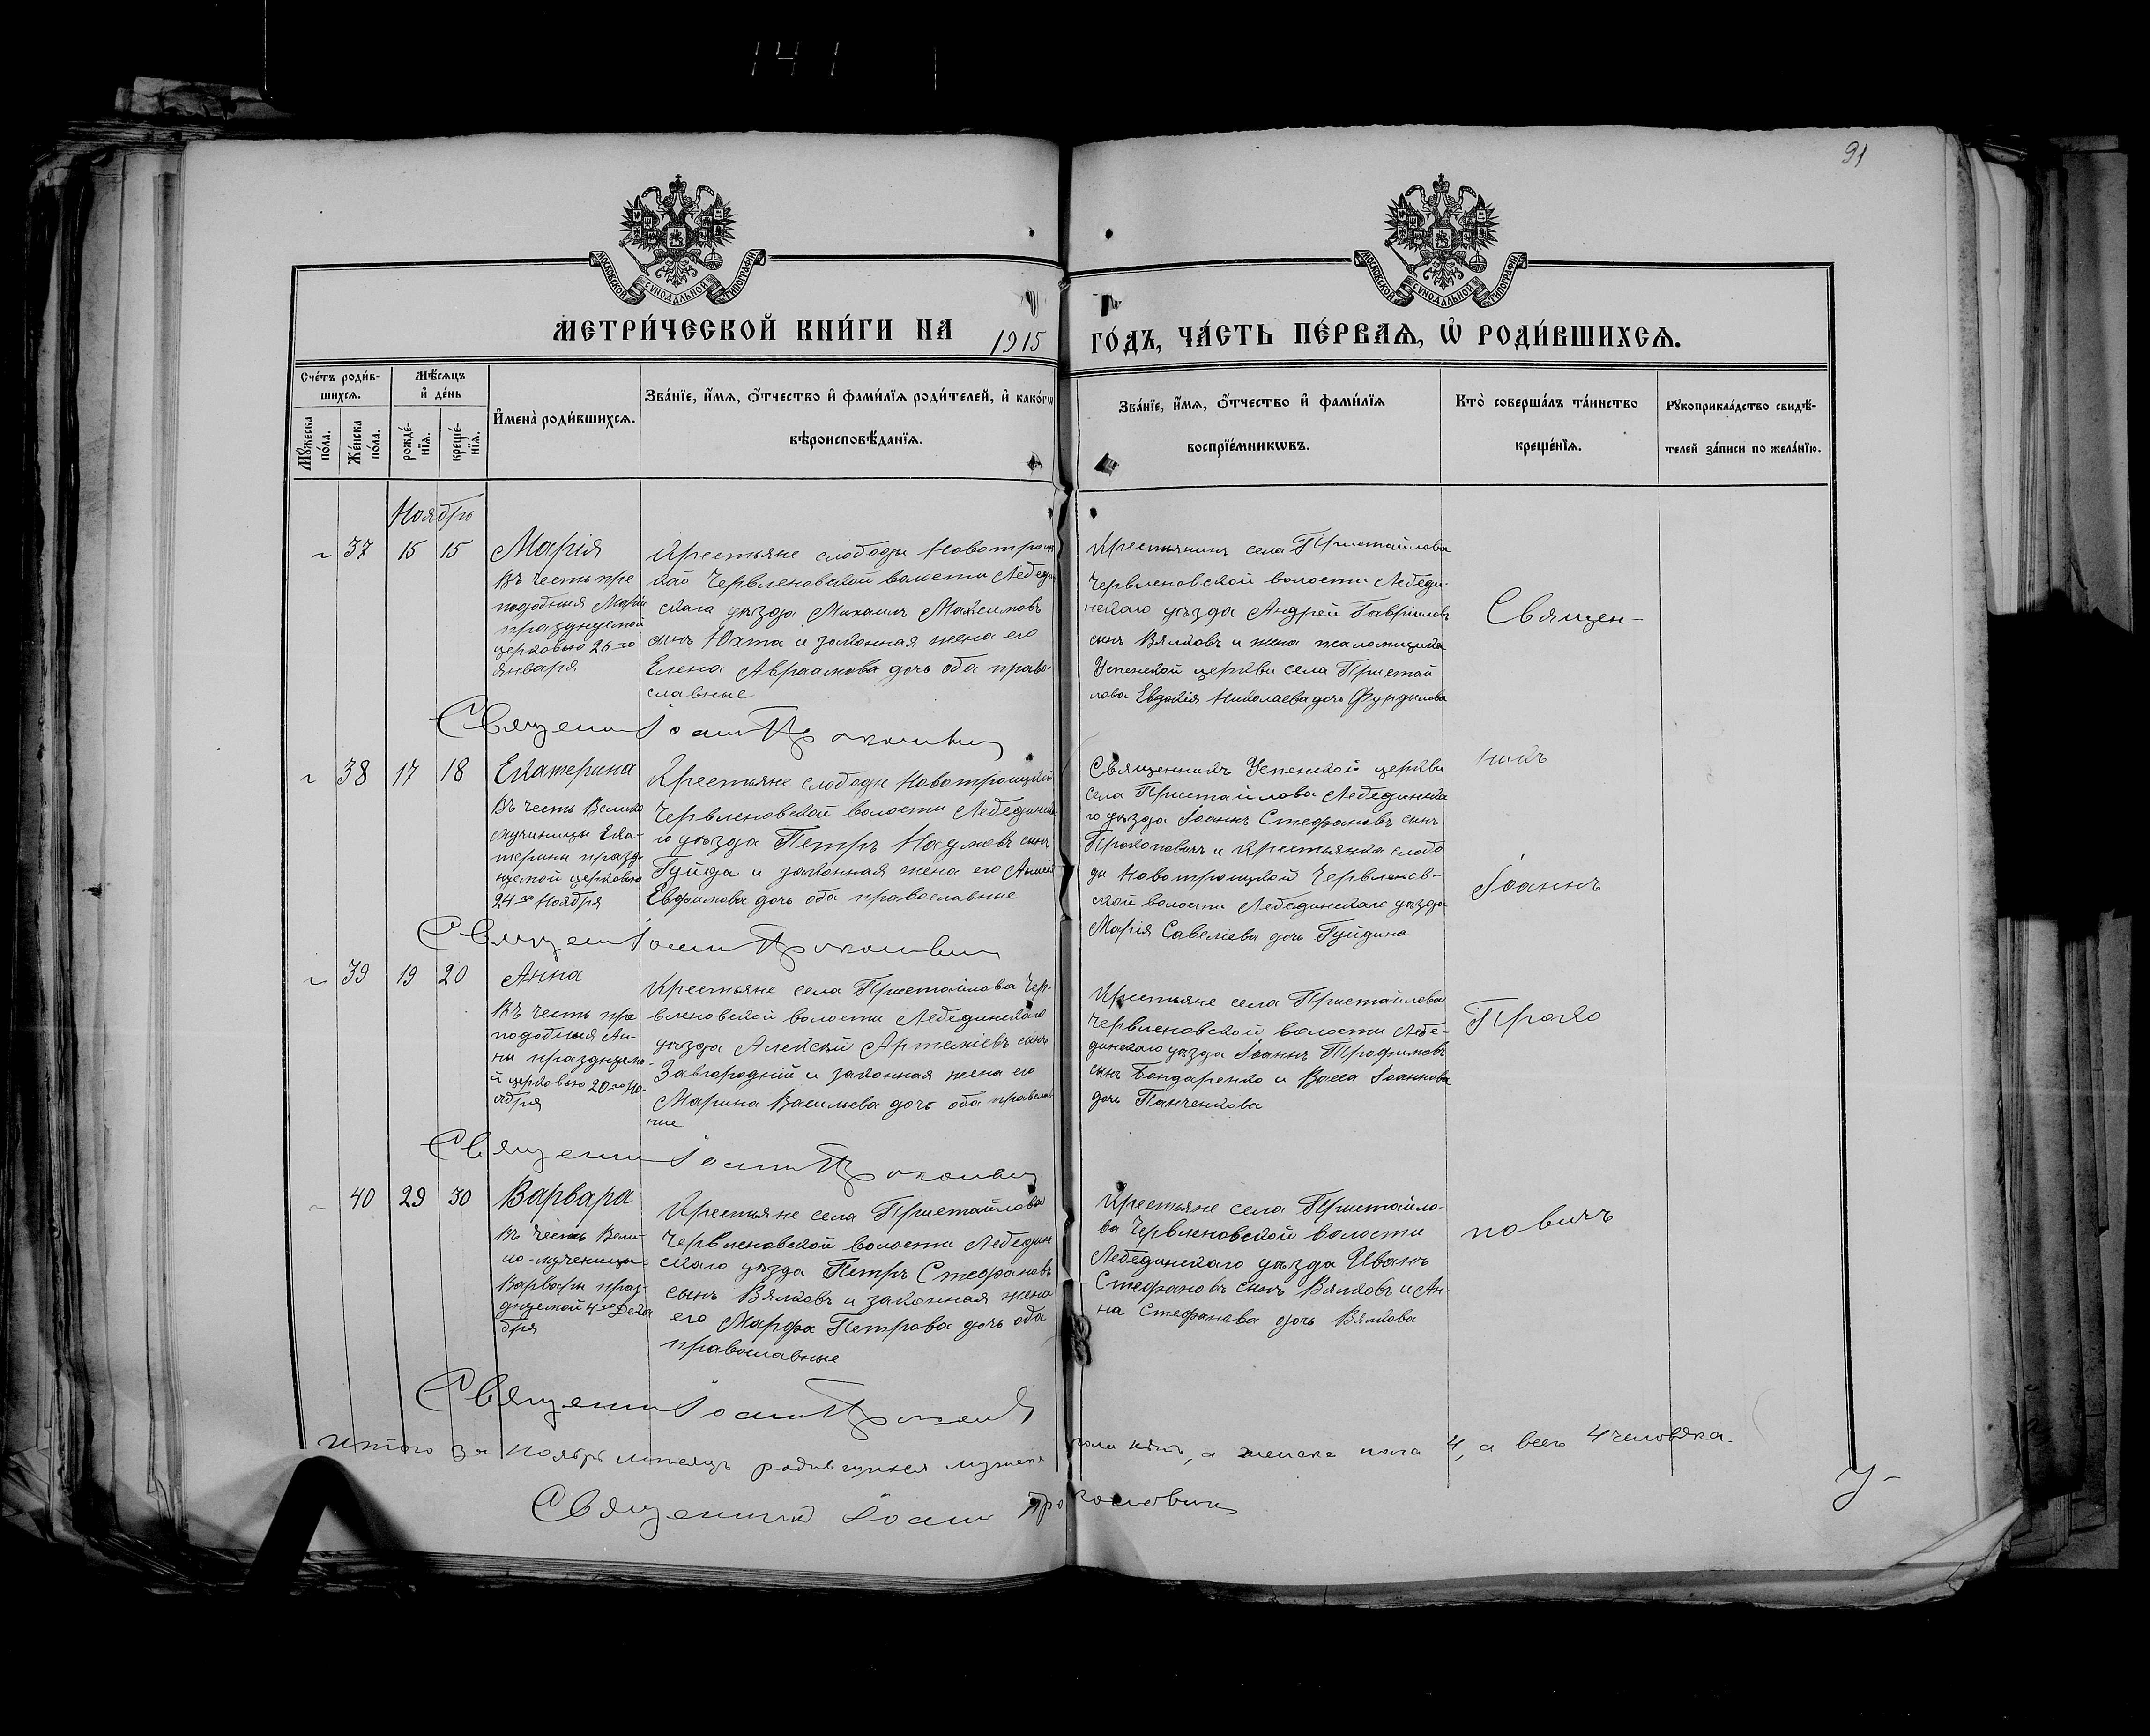 141
91
МОСКОВСКОЙ СѴНОДАЛЬНОЙ ТИПОГРАФІИ
МОСКОВСКОЙ СѴНОДАЛЬНОЙ ТИПОГРАФІИ
МЕТРИ́ЧЕСКОЙ КНИ́ГИ НА 1915 ГО́ДЪ, ЧА́СТЬ ПЕ́РВАѦ, Ѡ҆ РОДИ́ВШИХСѦ.
Сче́тъ роди́в-
шихсѧ.
Мꙋ́жеска по́ла.
Же́нска по́ла.
Мѣ́сѧцъ
и҆ де́нь
рожде́-
нїѧ.
креще́-
нїѧ.
И҆мена̀ роди́вшихсѧ.
Зва́нїе, и҆́мѧ, ѻ҆́тчество и҆ фами́лїѧ роди́телей, и҆ како́гѡ
вѣроисповѣ́данїѧ.
Зва́нїе, и҆́мѧ, ѻ҆́тчество и҆ фами́лїѧ
воспрїе́мникѡвъ.
Кто̀ соверша́лъ та́инство
креще́нїѧ.
Рꙋкоприкла́дство свидѣ́-
телей за́писи по жела́нїю.
Ноябрь
37 15 15
Марія
Въ честь пре
подобныя Маріи
празднуемой
церковью 26го
января
Крестьяне слободы Новотроиц
кой Червленовской волости Лебедин
скаго уѣзда Михаилъ Максимовъ
сынъ Юхта и законная жена его
Елена Авраамова дочь оба право-
славные
Крестьянинъ села Пристайлова
Червленовской волости Лебеди-
нскаго уѣзда Андрей Гавріиловъ
сынъ Вялковъ и жена псаломщика
Успенской церкви села Пристай
лова Евдокія Николаева дочь
Священ-
Священни Іоанн Прокопович
38 17 18
Екатерина
Въ честь Велико
мученицы Ека-
терины празд-
нуемой церковью
24го Ноября
Крестьяне слободы Новотроицкой
Червленовской волости Лебединска
го уѣзда Петръ Наумовъ сынъ
Гуйда и законная жена его
Евфимова дочь оба православные
Священникъ Успенской церкви
села Пристайлова Лебединска
го уѣзда Іоаннъ Стефановъ сынъ
Прокоповичъ и крестьянка слобо
ды Новотроицкой Червленов-
ской волости Лебединскаго уѣзда
Марія Савеліева дочь Гуйдина
никъ
Іоаннъ
Священ Іоанн Прокопович
39 19 20
Анна
Въ честь пре
подобныя Ан-
ны празднуемо-
й церковью 20го Но-
ября
Крестьяне села Пристайлова Чер-
вленовской волости Лебединскаго
уѣзда Алексѣй Артеміевъ сынъ
Завгородній и законная жена его
Марина Васильева дочь оба православ
ные
Крестьяне села Пристайлова
Червленовской волости Лебе-
динскаго уѣзда Іоаннъ Трофимовъ
сынъ Бондаренко и Васса Іоаннова
дочь Панченкова
Проко
Священни Іоанн Прокопович
40 29 30
Варвара
Въ честь Вели-
ко-мученицы
Варвары праз-
днуемой 4го Дека
бря
Крестьяне села Пристайлова
Червленовской волости Лебедин
скаго уѣзда Петръ Стефановъ
сынъ Вялковъ и законная жена
его Марфа Петрова дочь оба
православные
Крестьяне села Пристайло-
ва Червленовской волости
Лебединскаго уѣзда Иванъ
Стефановъ сынъ Вялковъ и Ан-
на Стефанова дочь Вялкова
повичъ
Священни Іоанн Прокопович
Итого за ноябрь мѣсяцъ родившихся мужска пола нѣтъ, а женска пола 4, а всего 4 человѣка.
Священник Іоанн Прокопович